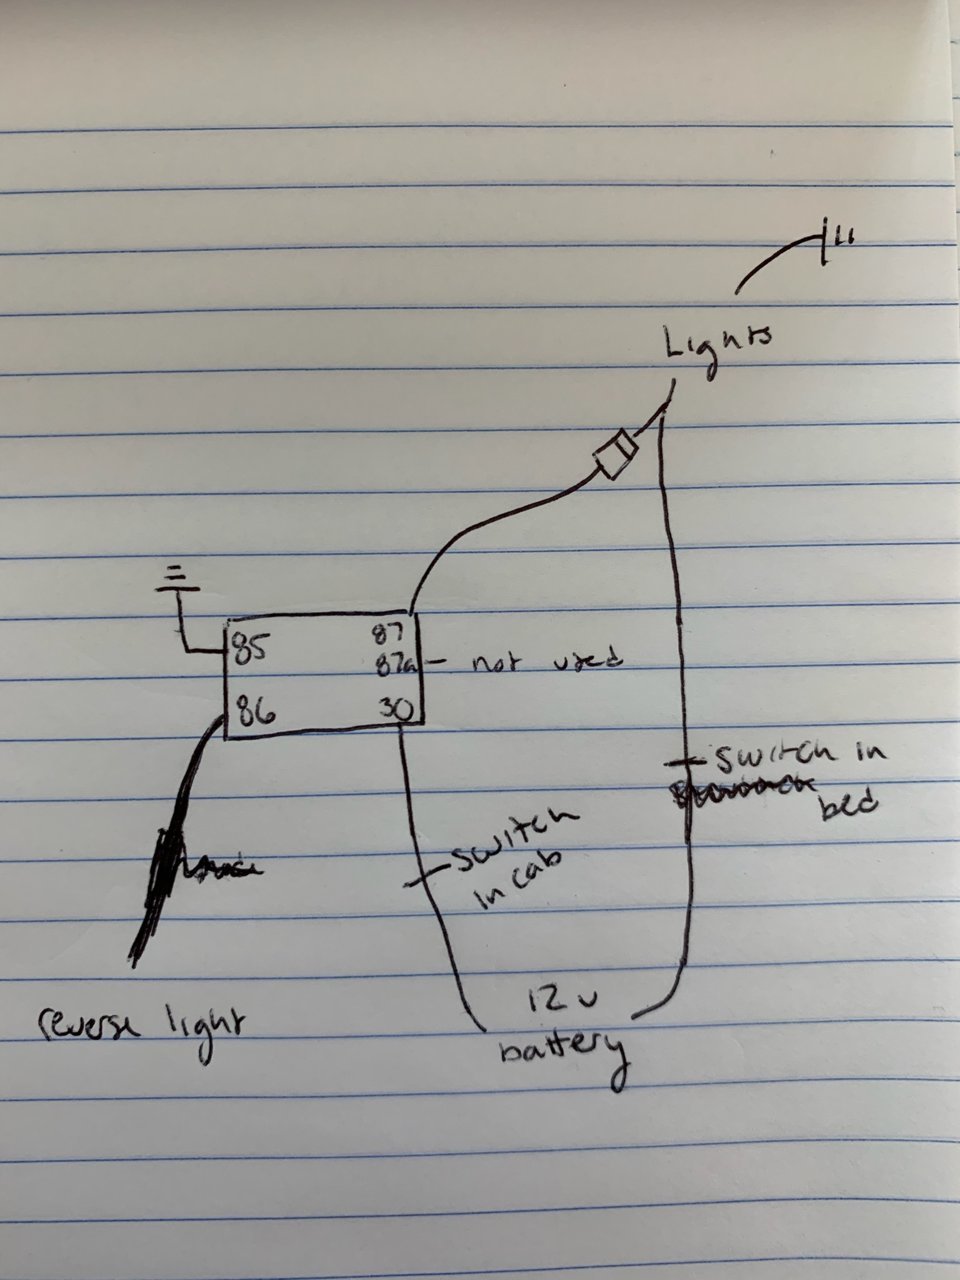 Lights
85
87
87a - not used
86
30
switch in
bed
switch
in cab
reverse light
12v
battery